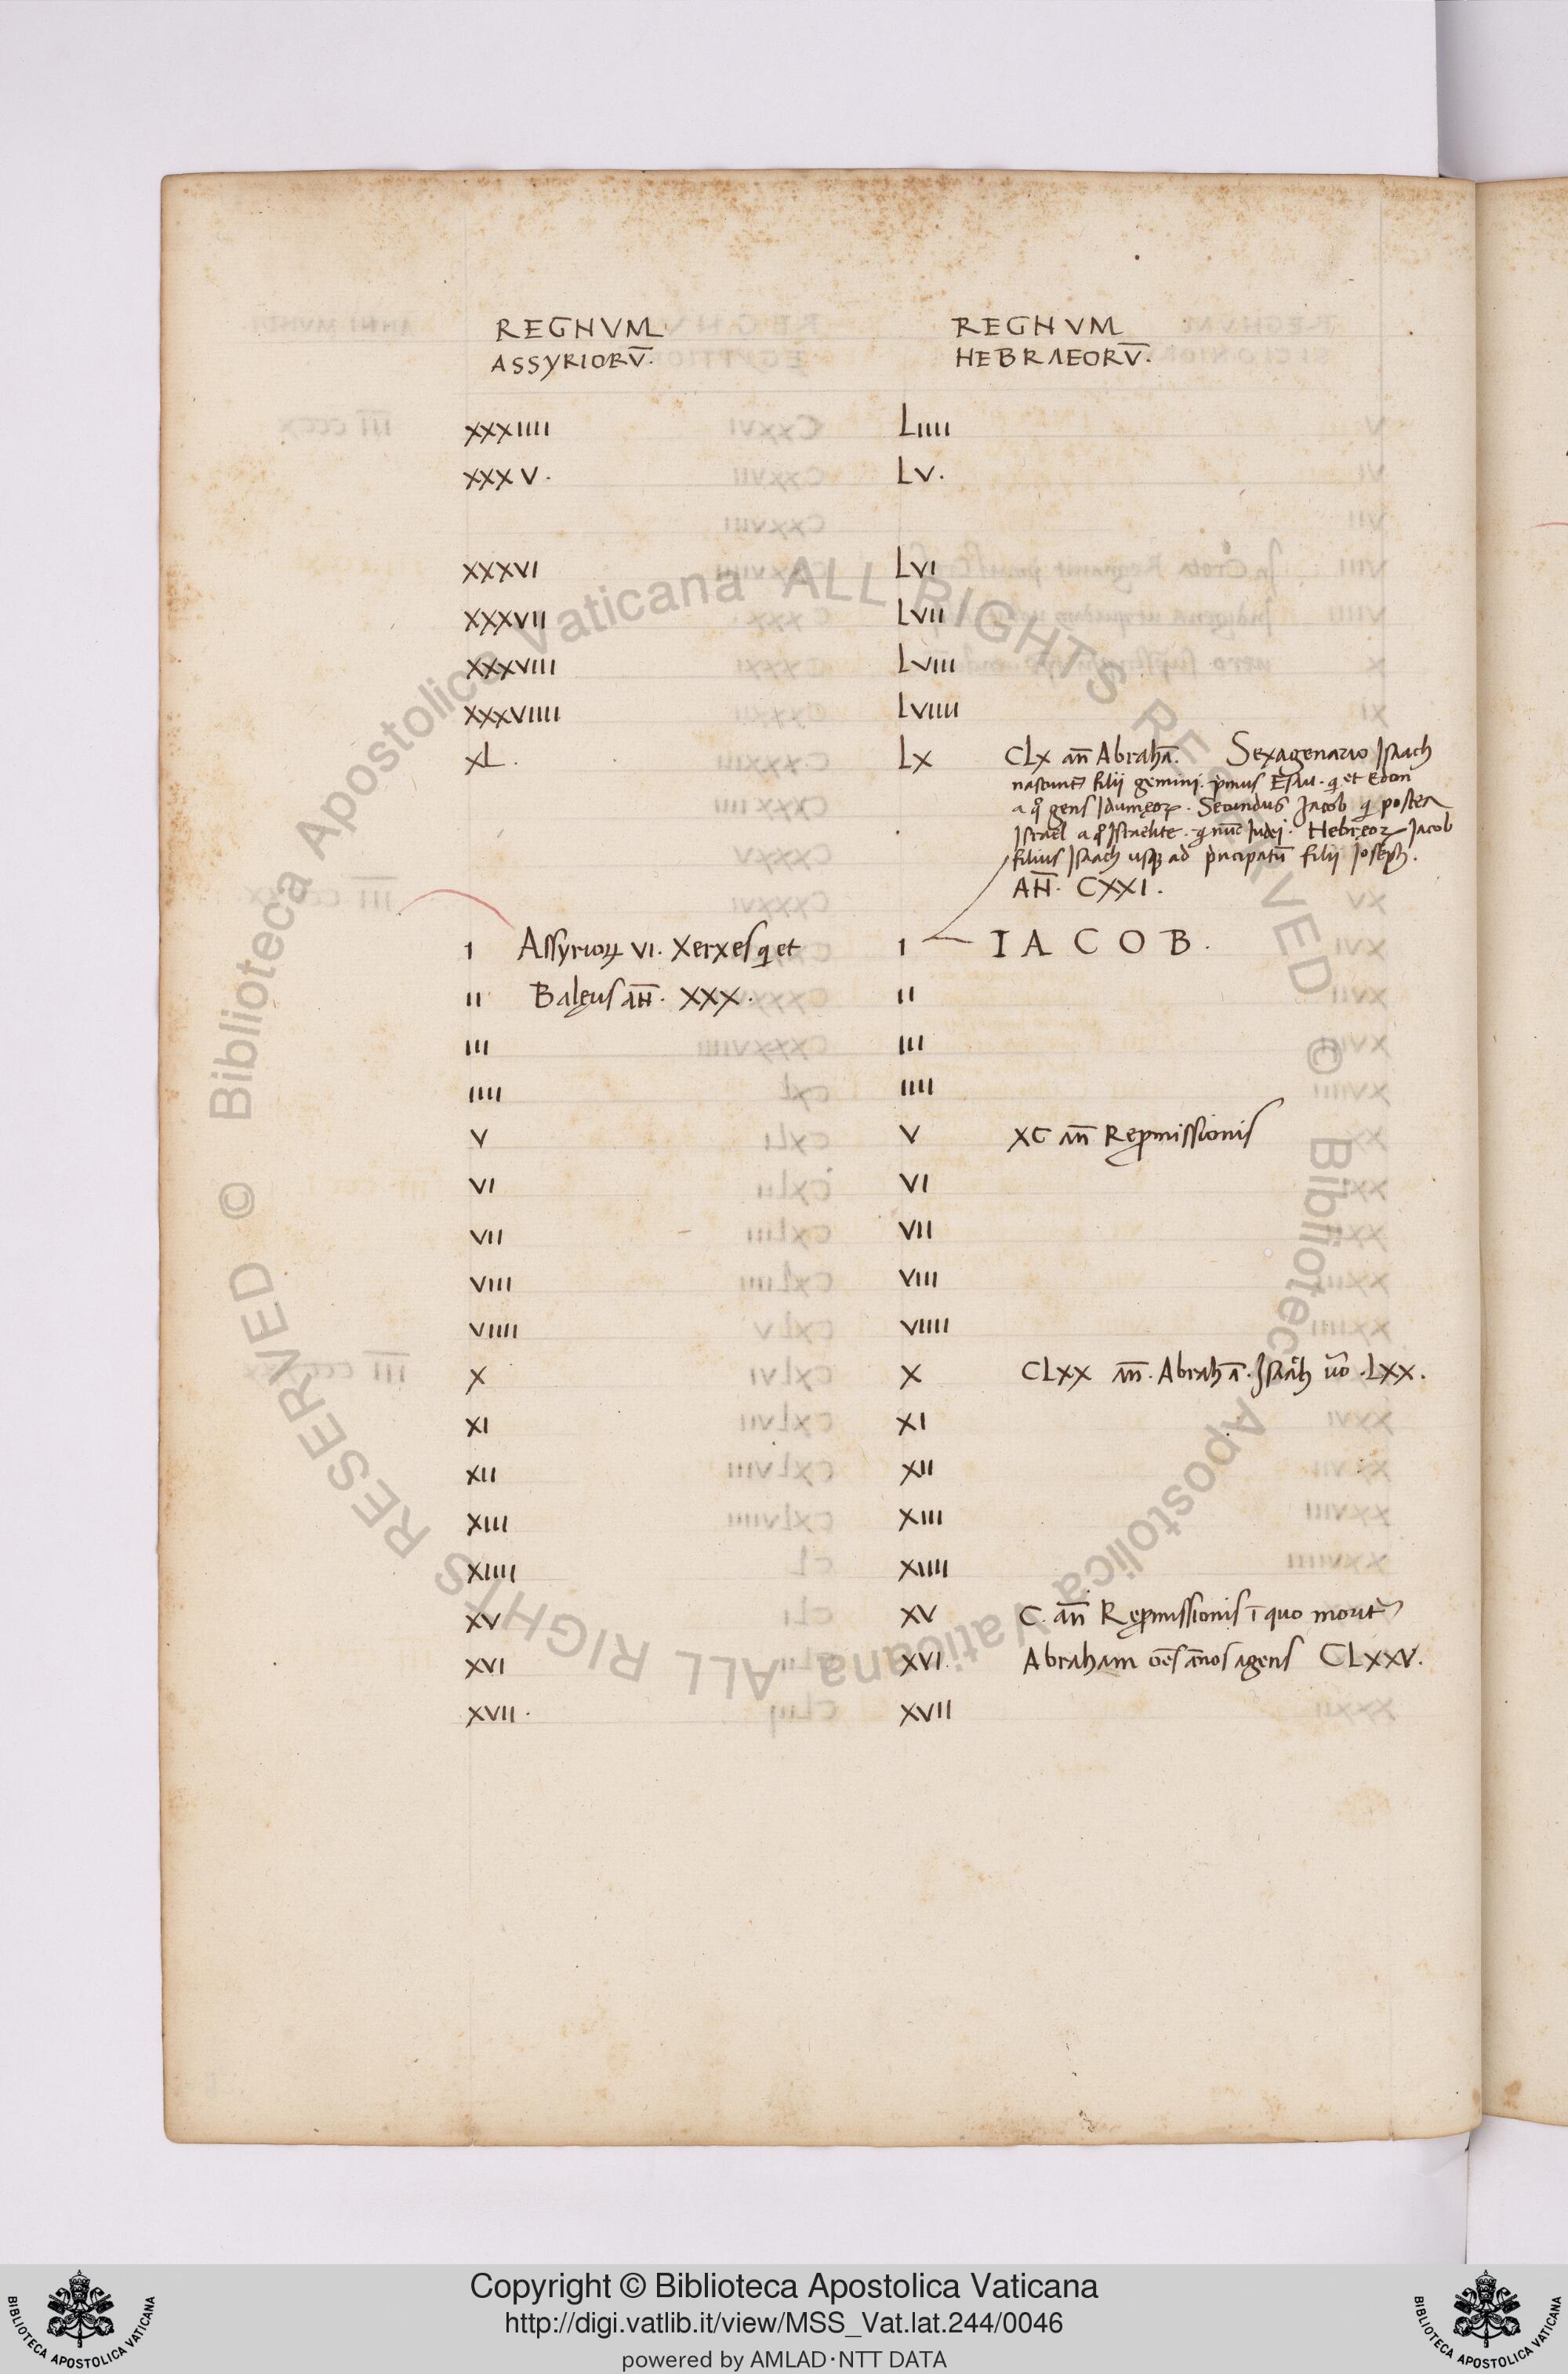 REGNVM REGNVM
ASSYRIORV̄. HEBRAEORV̄.
XXXIIII LIIII
XXXV. LV.
XXXVI LVI
XXXVII LVII
XXXVIII LVIII
XXXVIIII LVIIII
XL. LX CLX an̄ Abrahā. Sexagenario Isaach
nascunt filii gemini. pmus Esau. q et Edom
a qͦ gens Idumęoꝝ. Secundus Jacob q postea
Israel a qͦ Israelite. q nūc Iudei. Hebręoꝝ Jacob
filius Isaach usqꝫ ad pncipatū filii Ioseph.
AN̄. CXXI.
I Assyrioꝝ VI. Xerxes q et I IACOB.
II Balęus AN̄. XXX. II
III III
IIII IIII
V V XC an̄ Repmissionis
VI VI
VII VII
VIII VIII
VIIII VIIII
X X CLXX an̄. Abrahā. Isaach uͦo. LXX.
XI XI
XII XII
XIII XIII
XIIII XIIII
XV XV C. an̄ Repmissionis ī quo morit
XVI XVI. Abraham oēs ānos agens CLXXV.
XVII. XVII
Biblioteca Apostolica Vaticana ALL RIGHTS RESERVED ©
Biblioteca Apostolica Vaticana ALL RIGHTS RESERVED ©
Copyright © Biblioteca Apostolica Vaticana
http://digi.vatlib.it/view/MSS_Vat.lat.244/0046
powered by AMLAD·NTT DATA
BIBLIOTECA APOSTOLICA VATICANA
BIBLIOTECA APOSTOLICA VATICANA